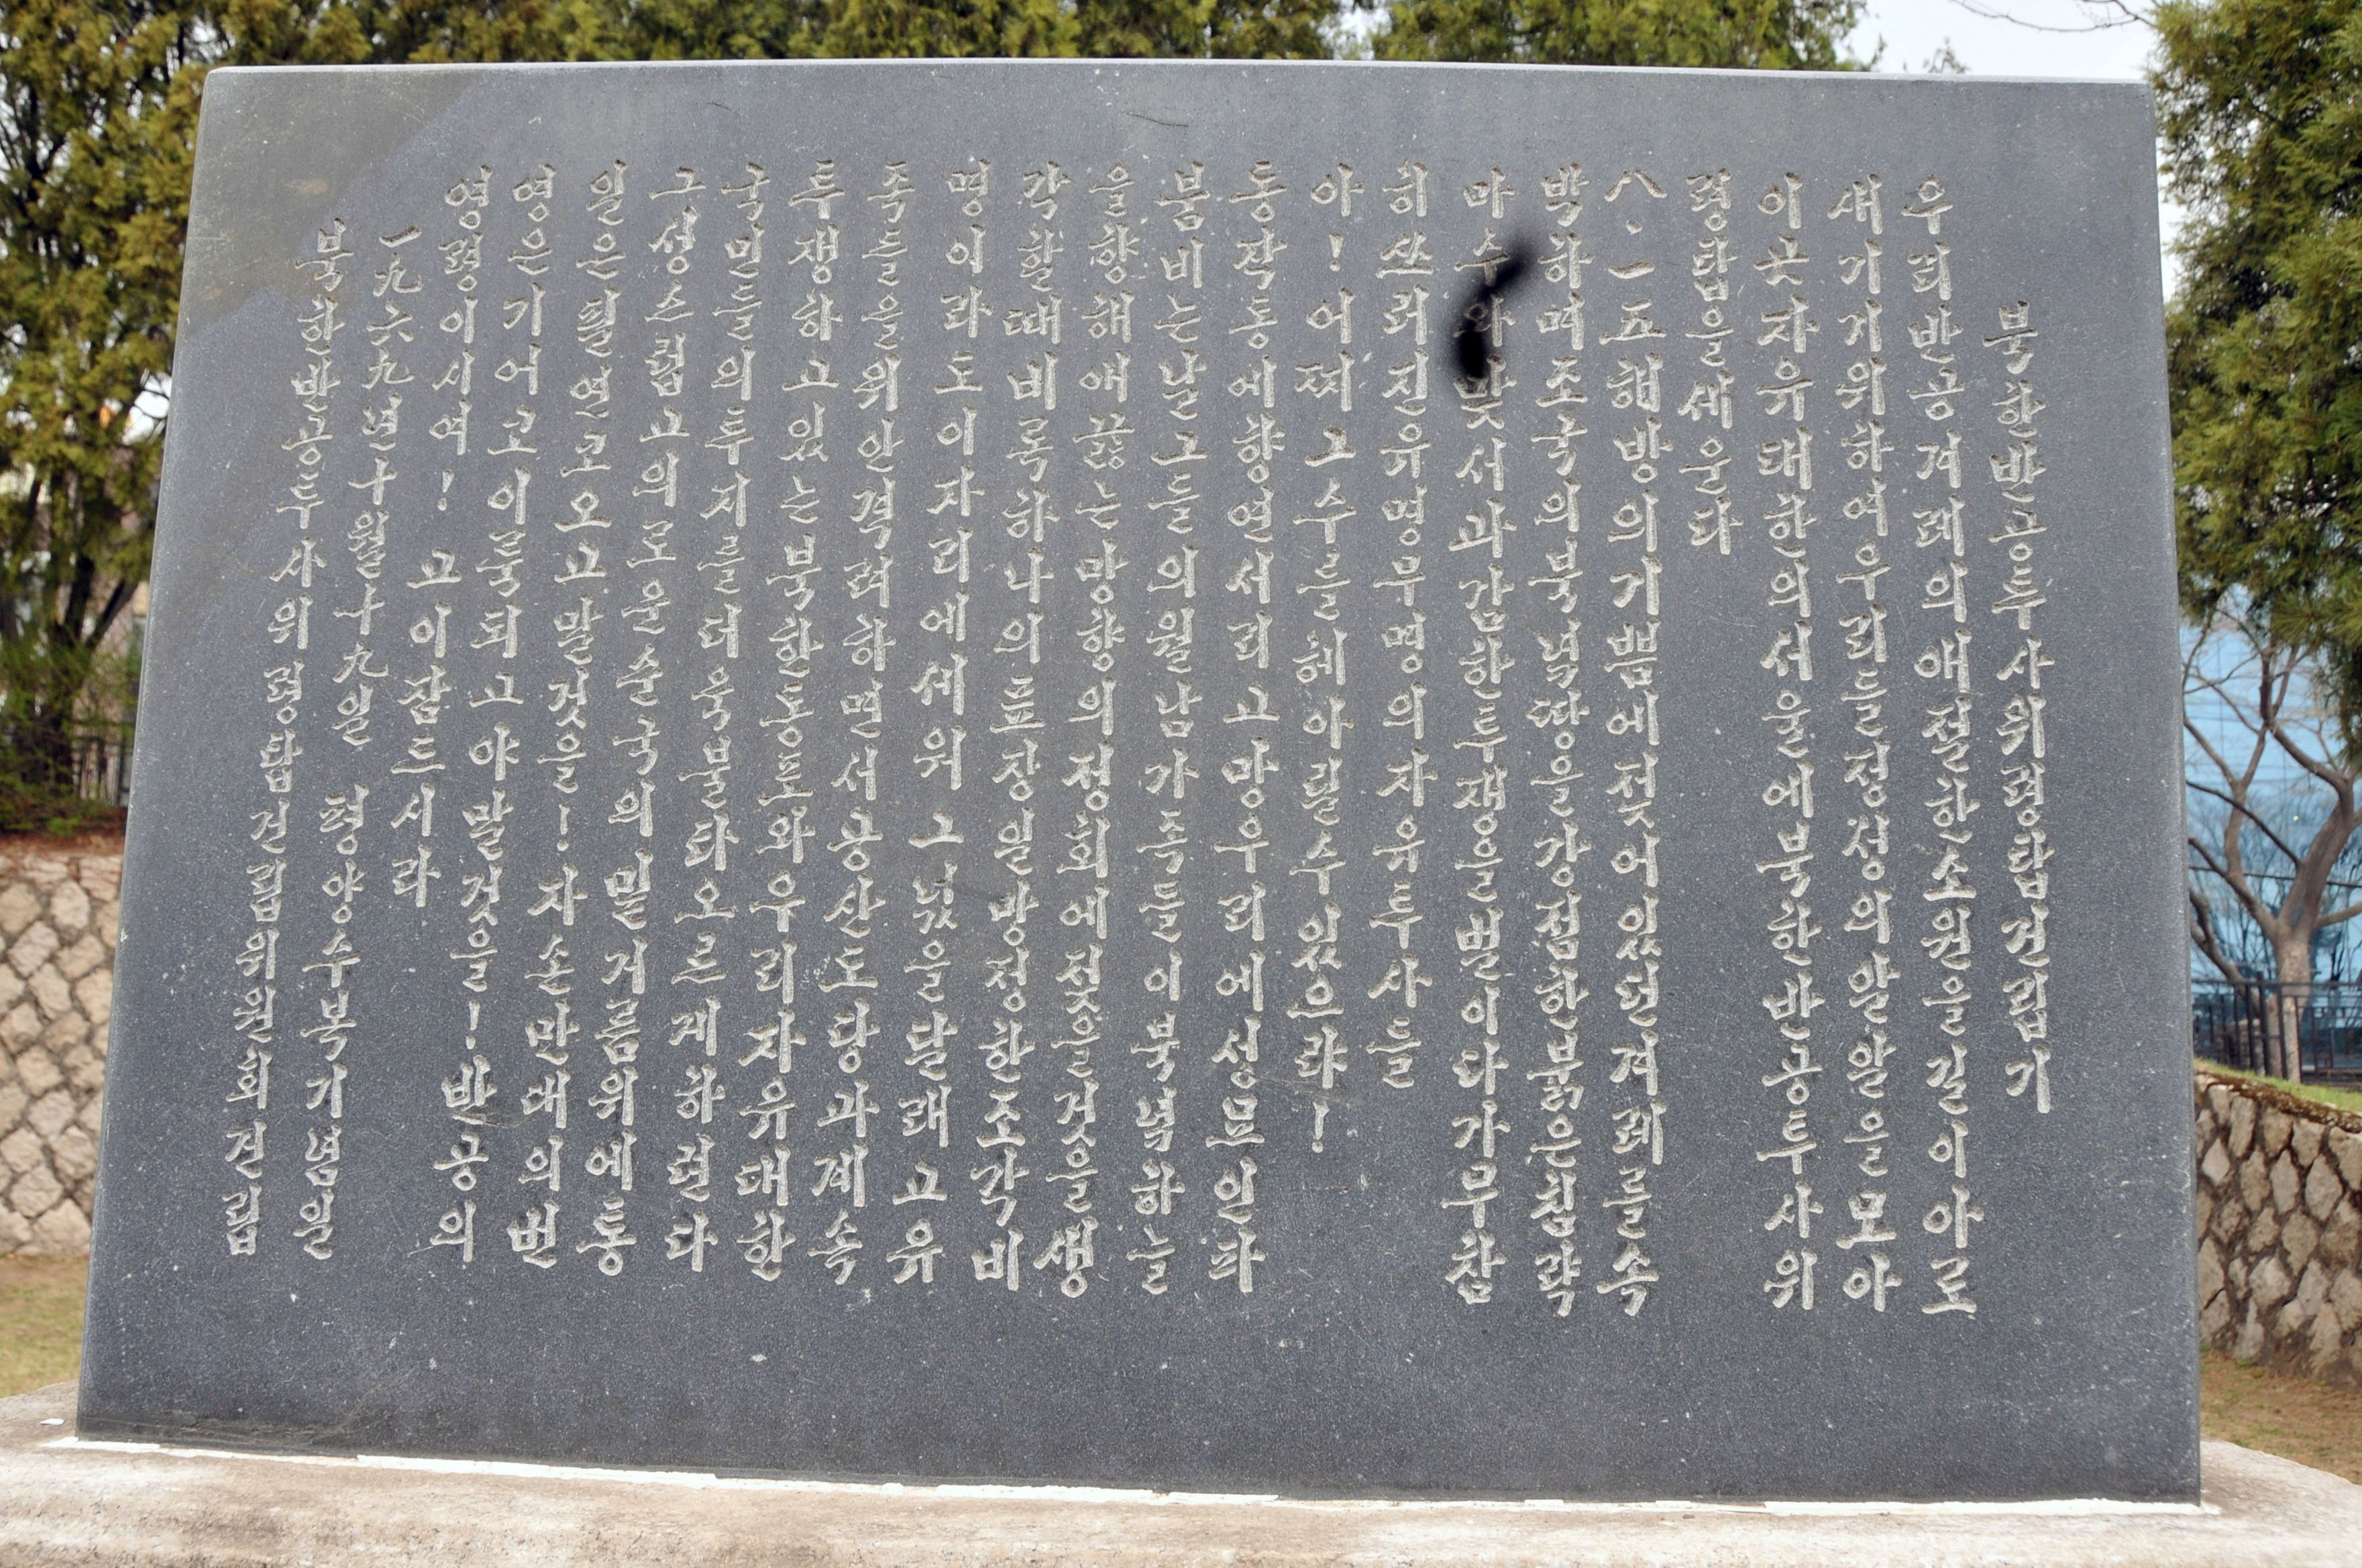 북한반공투사위령탑건립기
우리반공겨레의애절한소원을길이아로
새기기위하여우리들정성의알알을모아
이곳자유대한의서울에북한반공투사위
령탑을세운다
八·一五해방의기쁨에젖어있던겨레를속
박하며조국의북녘땅을강점한붉은침략
마수와맞서과감한투쟁을벌이다가무참
히쓰러진유명무명의자유투사들
아!어찌그수를헤아릴수있으랴!
동작동에향연서리고망우리에성묘인파
붐비는날그들의월남가족들이북녘하늘
을향해애끓는망향의정회에젖을것을생
각할때비록하나의표창일방정한조각비
명이라도이자리에세워그넋을달래고유
족들을위안격려하면서공산도당과계속
투쟁하고있는북한동포와우리자유대한
국민들의투지를더욱불타오르게하련다
그성스럽고의로운순국의밑거름위에통
일은필연코오고말것을!자손만대의번
영은기어코이룩되고야말것을!반공의
영령이시여!고이잠드시라
一九六九년十월十九일 평양수복기념일
북한반공투사위령탑건립위원회건립